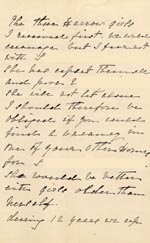 The three Harrow girls
I received first we need
encourage but I fear not
with S
She has upset themselves
and
She will not let alone
I should therefore be
obliged if you could
find a vacancy in
one of your other Homes
for S
She would be better
with girls older than
herself.
during 12 years we